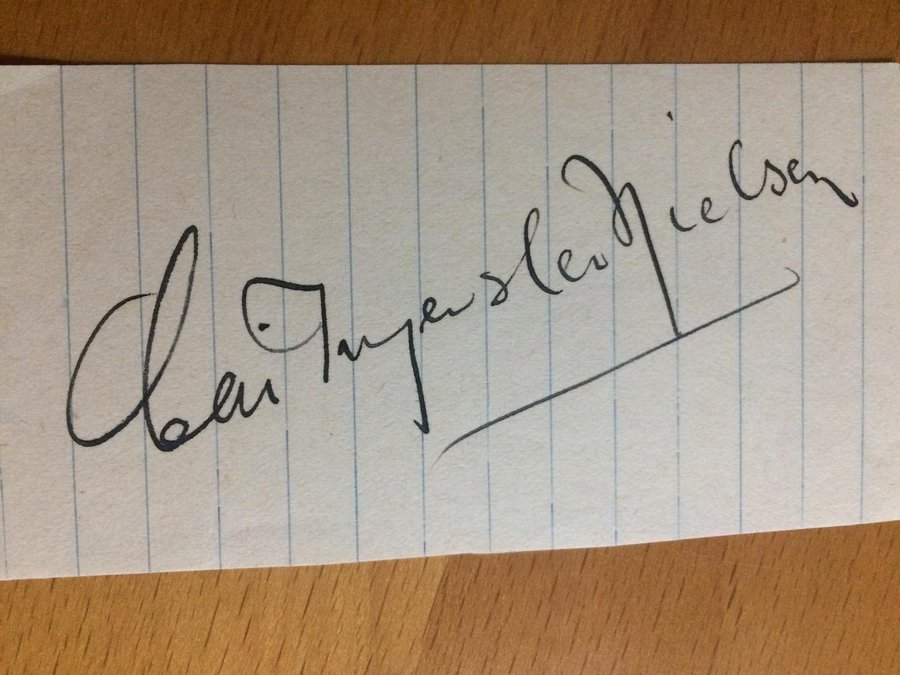 Ingerslev Nielsen